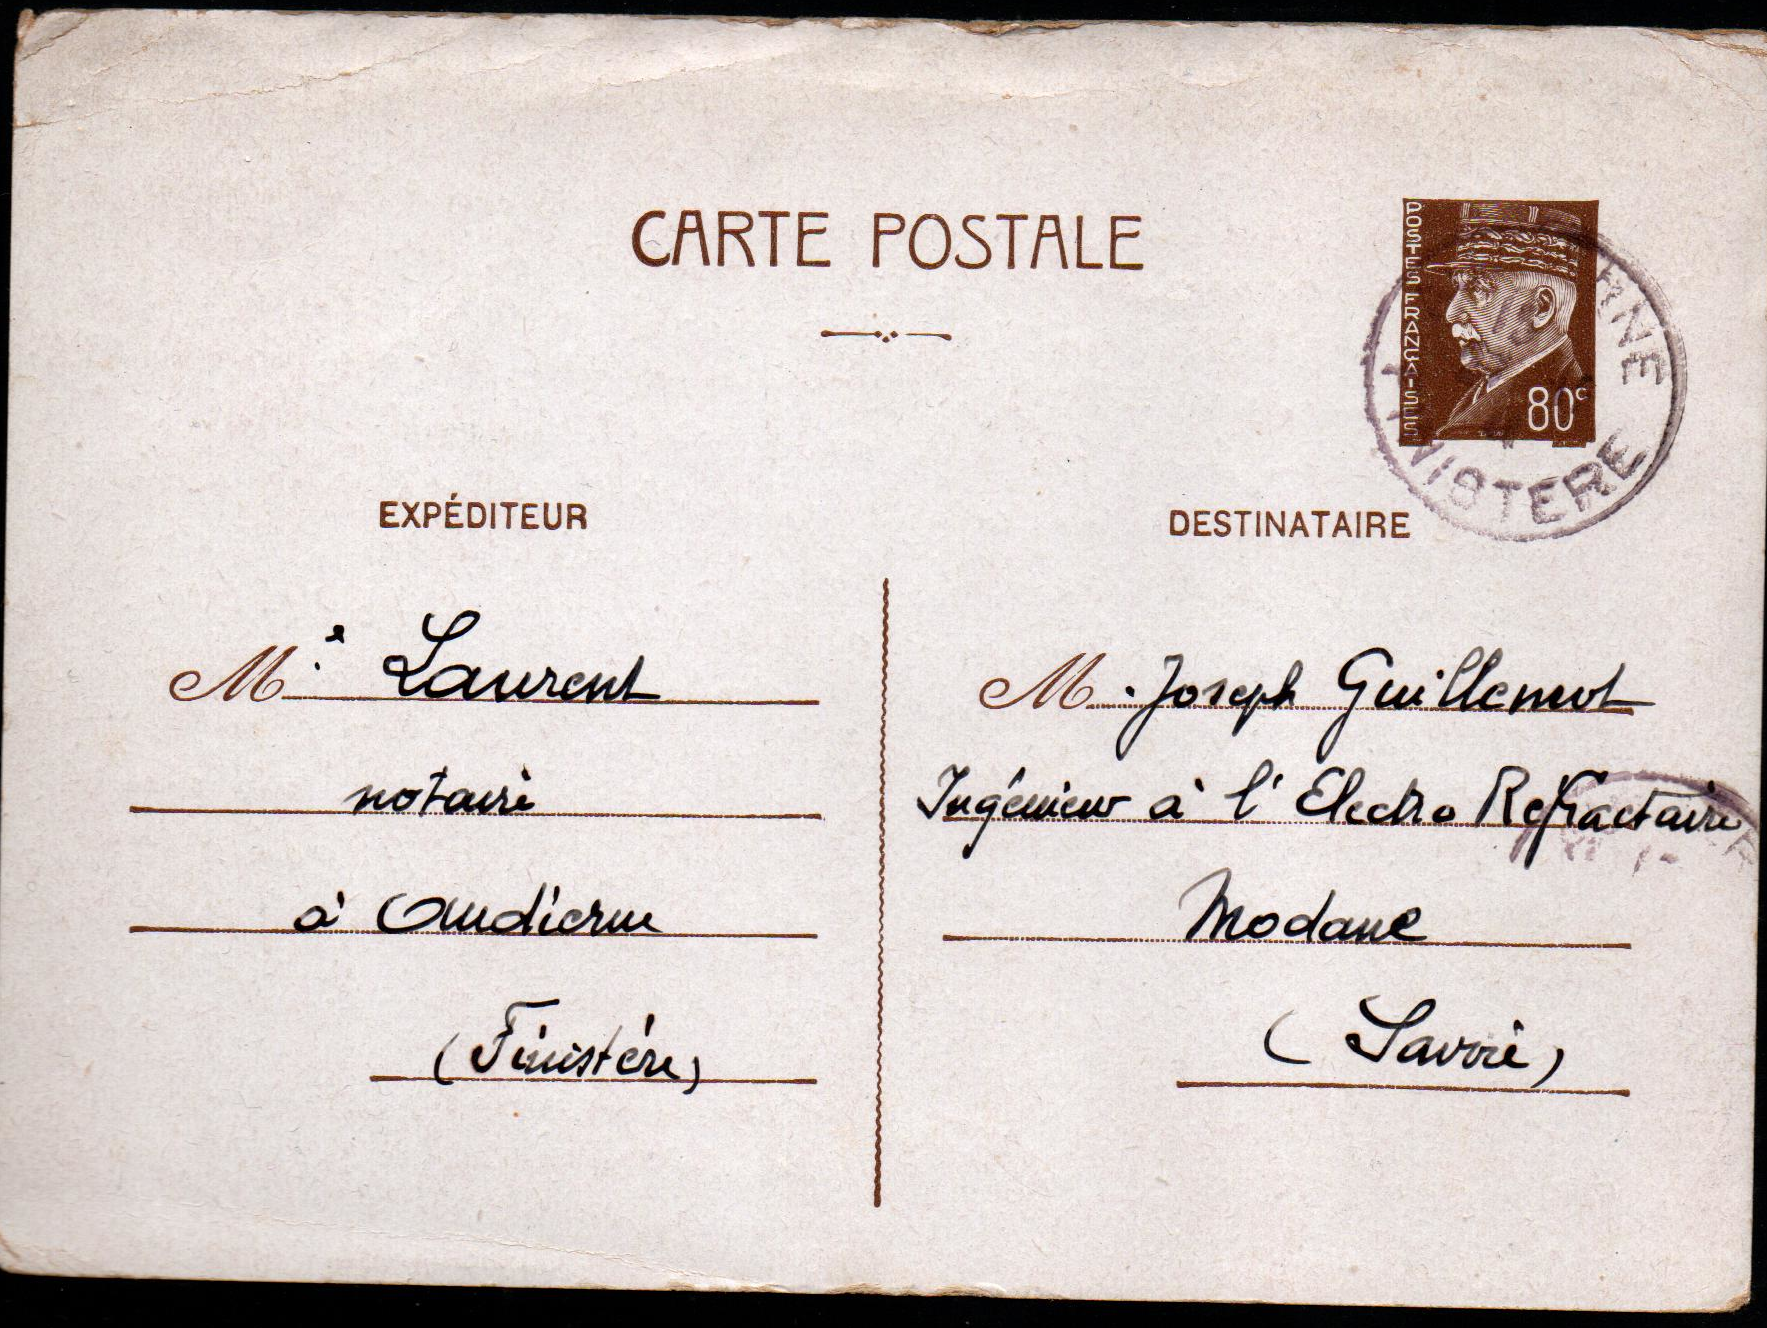 CARTE POSTALE
POSTES FRANÇAISES
80c
RNE
NISTERE
EXPÉDITEUR
Me Laurent
notaire
à Audierne
(Finistère)
DESTINATAIRE
M. Joseph Guillemot
Ingénieur à l'Electro Refractaire
Modane
(Savoie)